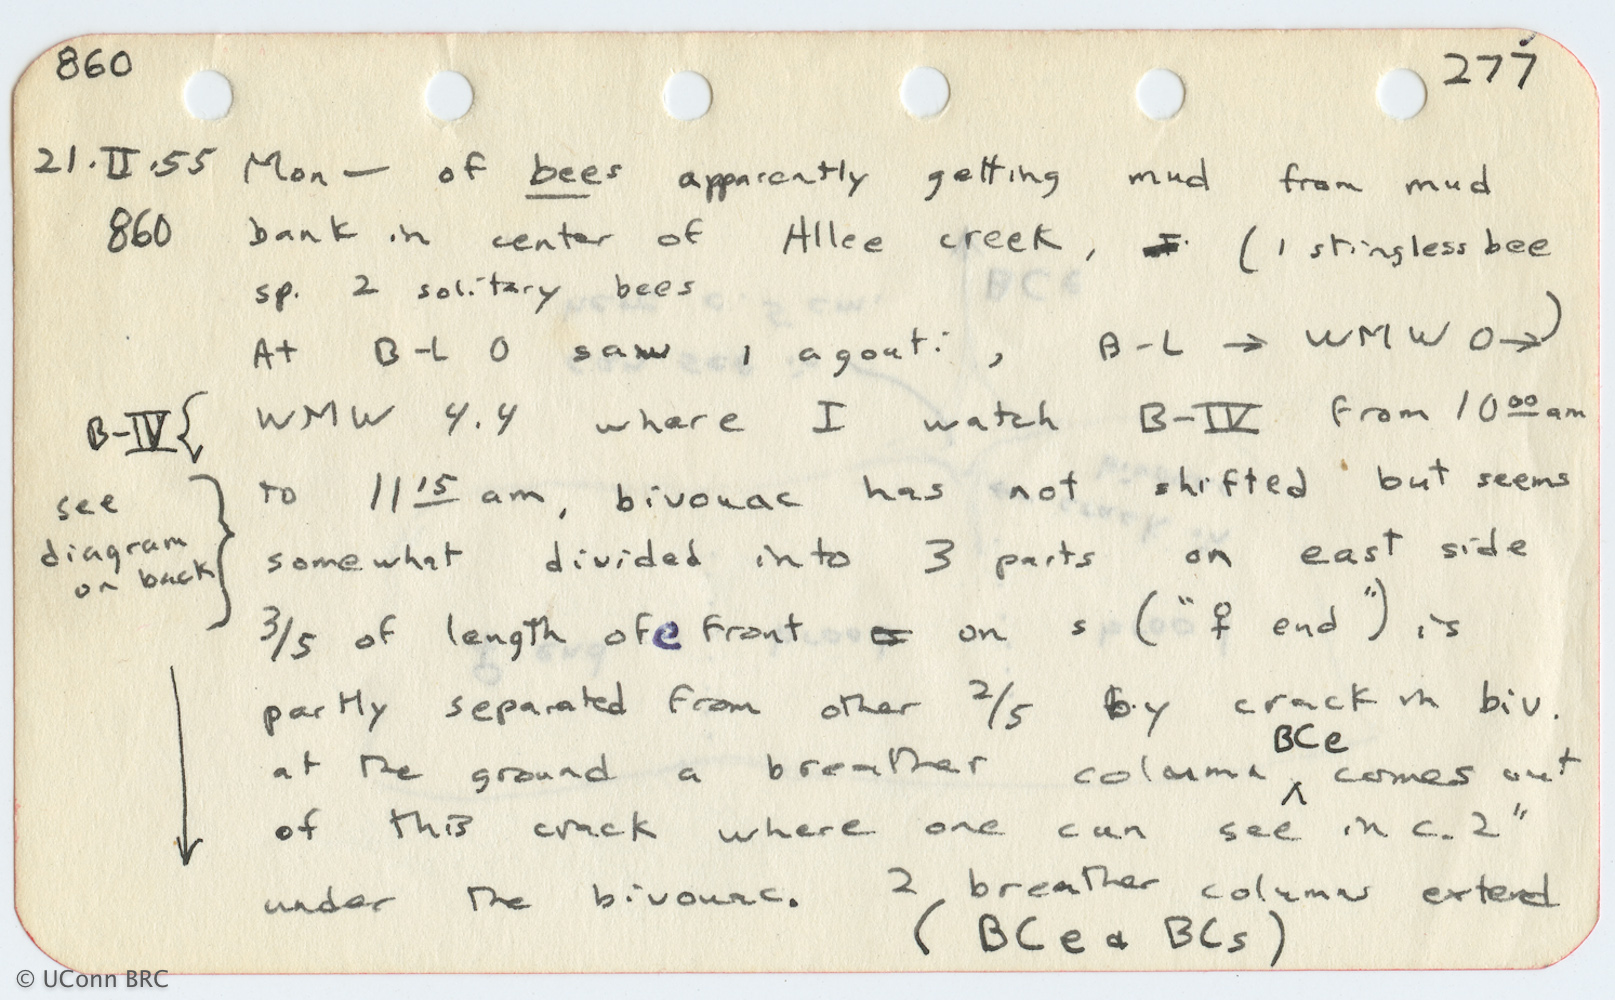 860
277
21.II.55 Mon — of bees apparently getting mud from mud
860 bank in center of Allee creek, (1 stingless bee
sp. 2 solitary bees
At B-L 0 saw 1 agouti, B-L → WMW 0→)
B-IV { WMW 4.4 where I watch B-IV from 10 00 am
see to 11 15 am, bivouac has not shifted but seems
diagram somewhat divided into 3 parts on east side
on back 3/5 of length of e front on s ("♀ end") is
partly separated from other 2/5 by crack in biv.
at the ground a breather column ^ BCe comes out
of this crack where one can see in c. 2"
under the bivouac. 2 breather columns extend
(BCe & BCs)
© UConn BRC